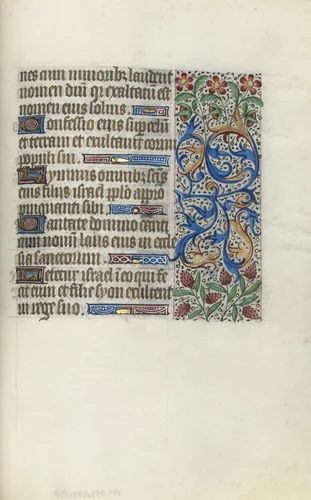 nes cum iunioribz laudent
nomen dm̄ qr exaltatū est
nomen eius solius.
Confessio eius sup celū
et terram et exultauit cornu
populi sui.
Ympnus omnibz sctīs
eius filiis israel pplo appro
pinquanti sibi.
Cantate domino canti
cum nouū laus eius in eccle
sia sanctorum.
Letetur israel ī eo qui fe
cit eum et filie syon exultent
in rege suo.